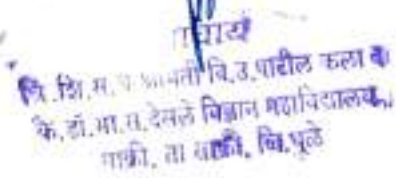 प्राचार्य
वि.शि.स.चे श्रीमती वि.उ.पाटील कला व
कै.डॉ.भा.रा.देसले विज्ञान महाविद्यालय,
साक्री, ता साक्री, जि.धुळे